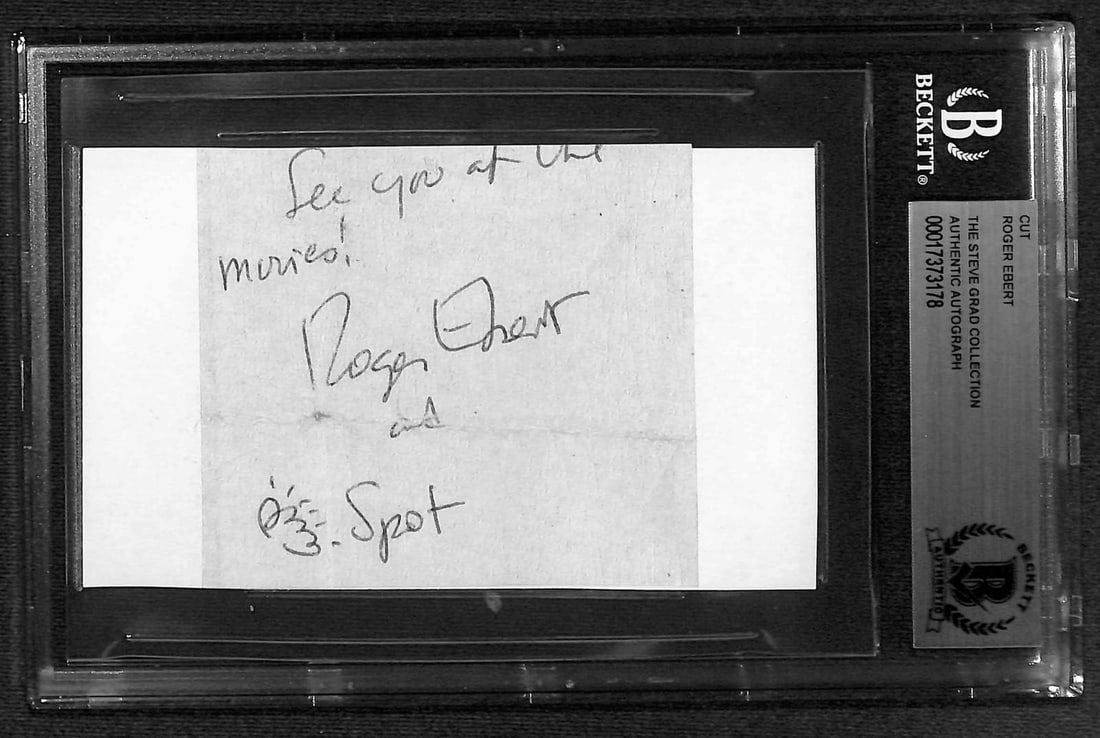 See you at the
movies!
Roger Ebert
and
Spot
BECKETT®
B
CUT
ROGER EBERT
THE STEVE GRAD COLLECTION
AUTHENTIC AUTOGRAPH
00017373178
BECKETT
B
AUTHENTIC